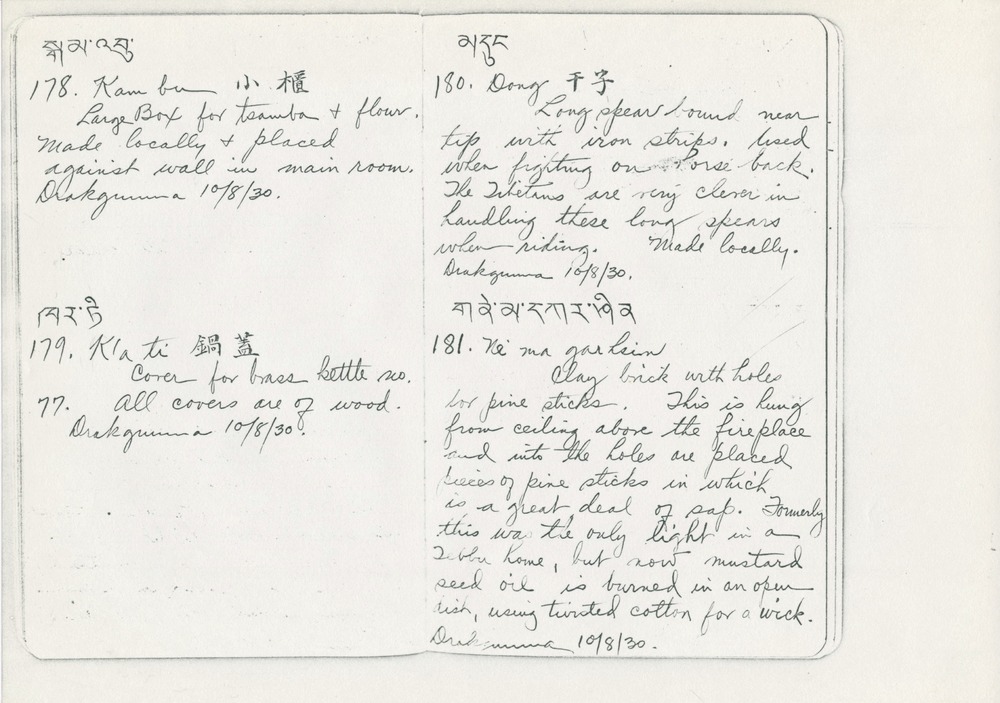 སྒམ་འབུ་
178. Kam bu 小 櫃
Large Box for tsamba + flour.
Made locally + placed
against wall in main room.
Drakgumna 10/8/30.
ཁར་ཏི
179. K'a ti 鍋 蓋
Cover for brass kettle no.
77. All covers are of wood.
Drakgumna 10/8/30.
མདུང
180. Dong 干 字
Long spear bound near
tip with iron strips. Used
when fighting on horse back.
The Tibetans are very clever in
handling these long spears
when riding. Made locally.
Drakgumna 10/8/30.
181. Ne ma gar hsin
Clay brick with holes
for pine sticks. This is hung
from ceiling above the fireplace
and into the holes are placed
pieces of pine sticks in which
is a great deal of sap. Formerly
this was the only light in a
Tebbu home, but now mustard
seed oil is burned in an open
dish, using twisted cotton for a wick.
Drakgumna 10/8/30.